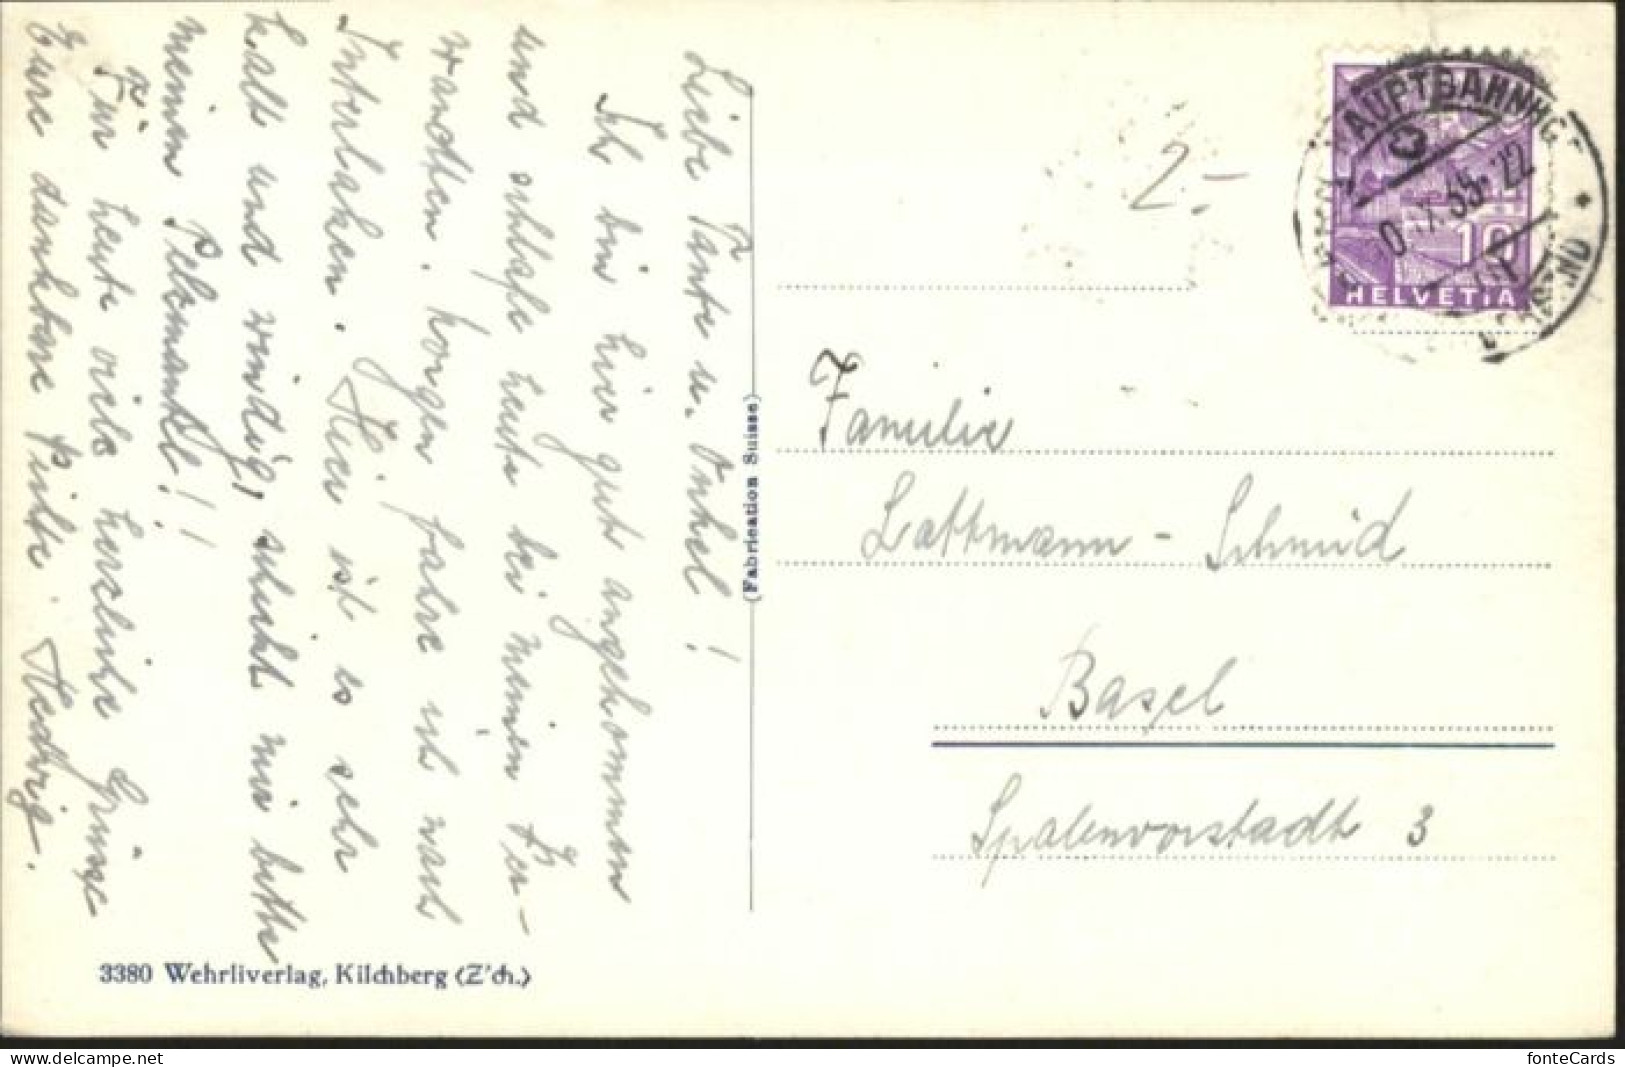 Liebe Tante u. Onkel!
Ich bin hier gut angekommen
und schlafe heute bei meinen Ver-
wandten. Morgen fahre ich nach
Interlaken. Hier ist es sehr
kalt und windig, schickt mir bitte
meinen Pelzmantel!!
Für heute viele herzliche Grüsse
Eure dankbare
Hedwig.
3380 Wehrliverlag, Kilchberg (Z'ch.)
(Fabrication Suisse)
2.-
HAUPTBAHNHOF
35. 22
10
HELVETIA
Familie
Lattmann - Schmid
Basel
Spalenvorstadt 3
fonteCards